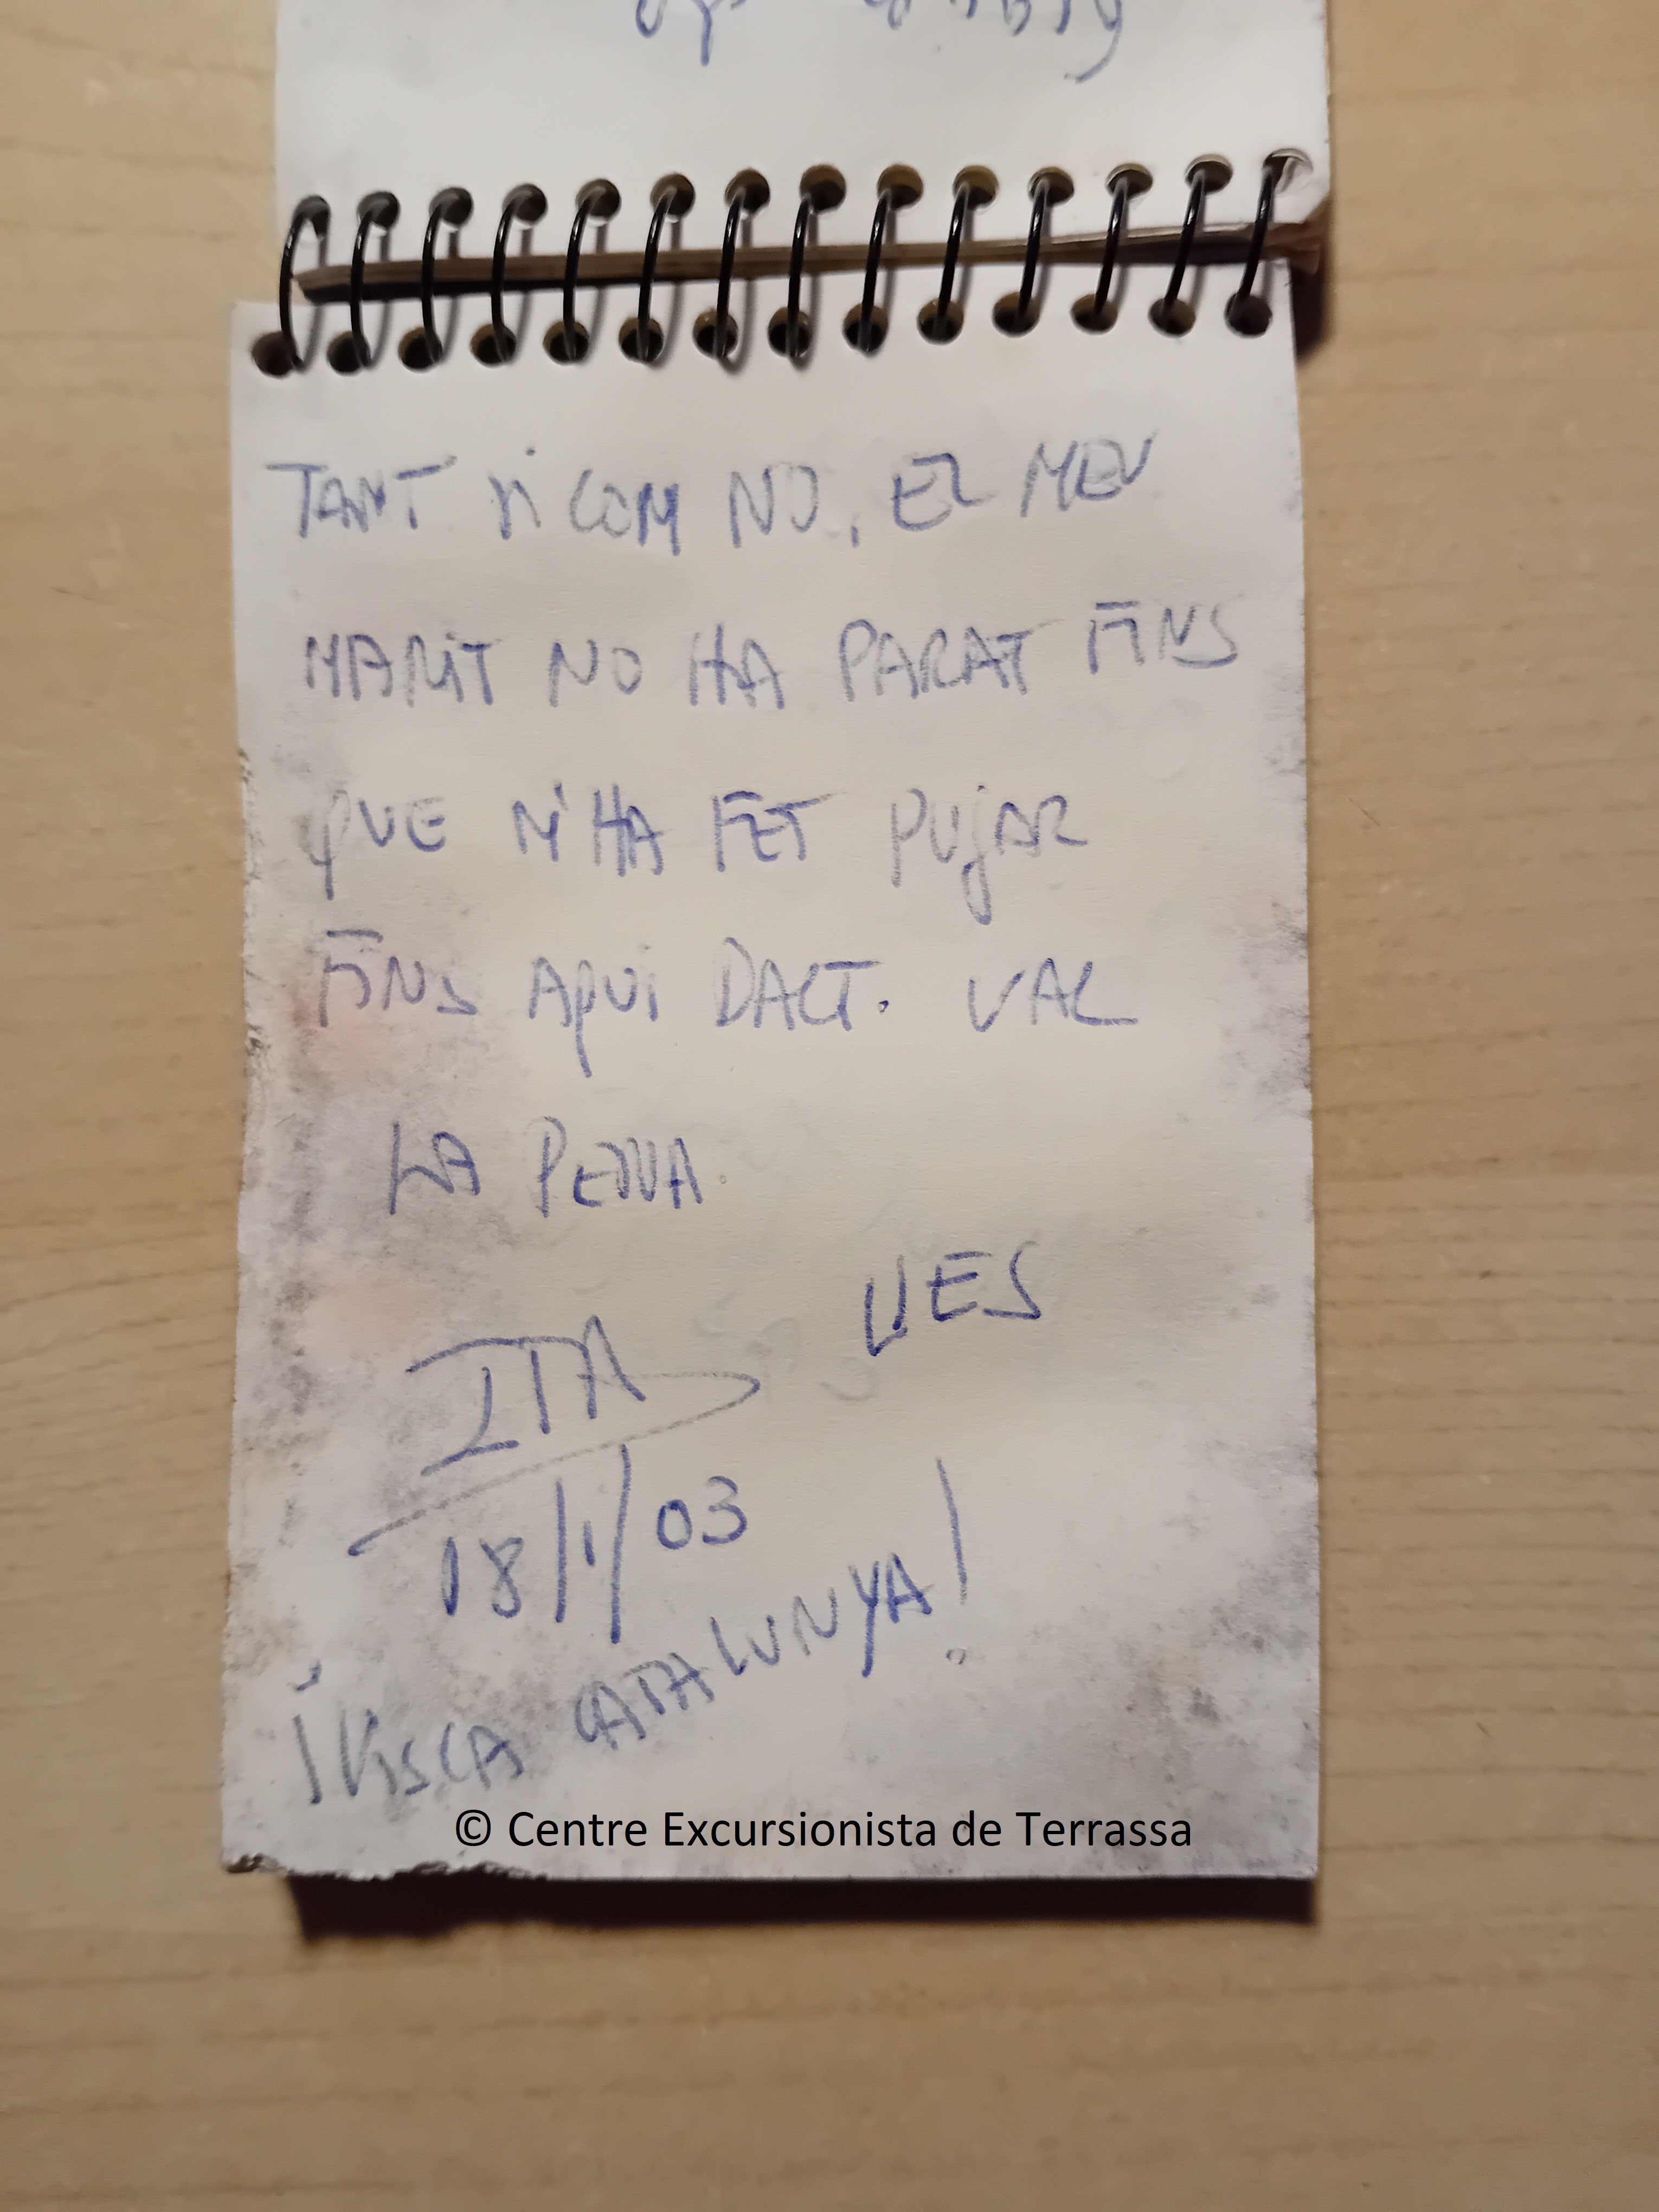 TANT SI COM NO, EL MEU
MARIT NO HA PARAT FINS
QUE M'HA FET PUJAR
FINS AQUI DALT. VAL
LA PENA.
UES
ITA
18/1/03
¡VISCA CATALUNYA!
© Centre Excursionista de Terrassa